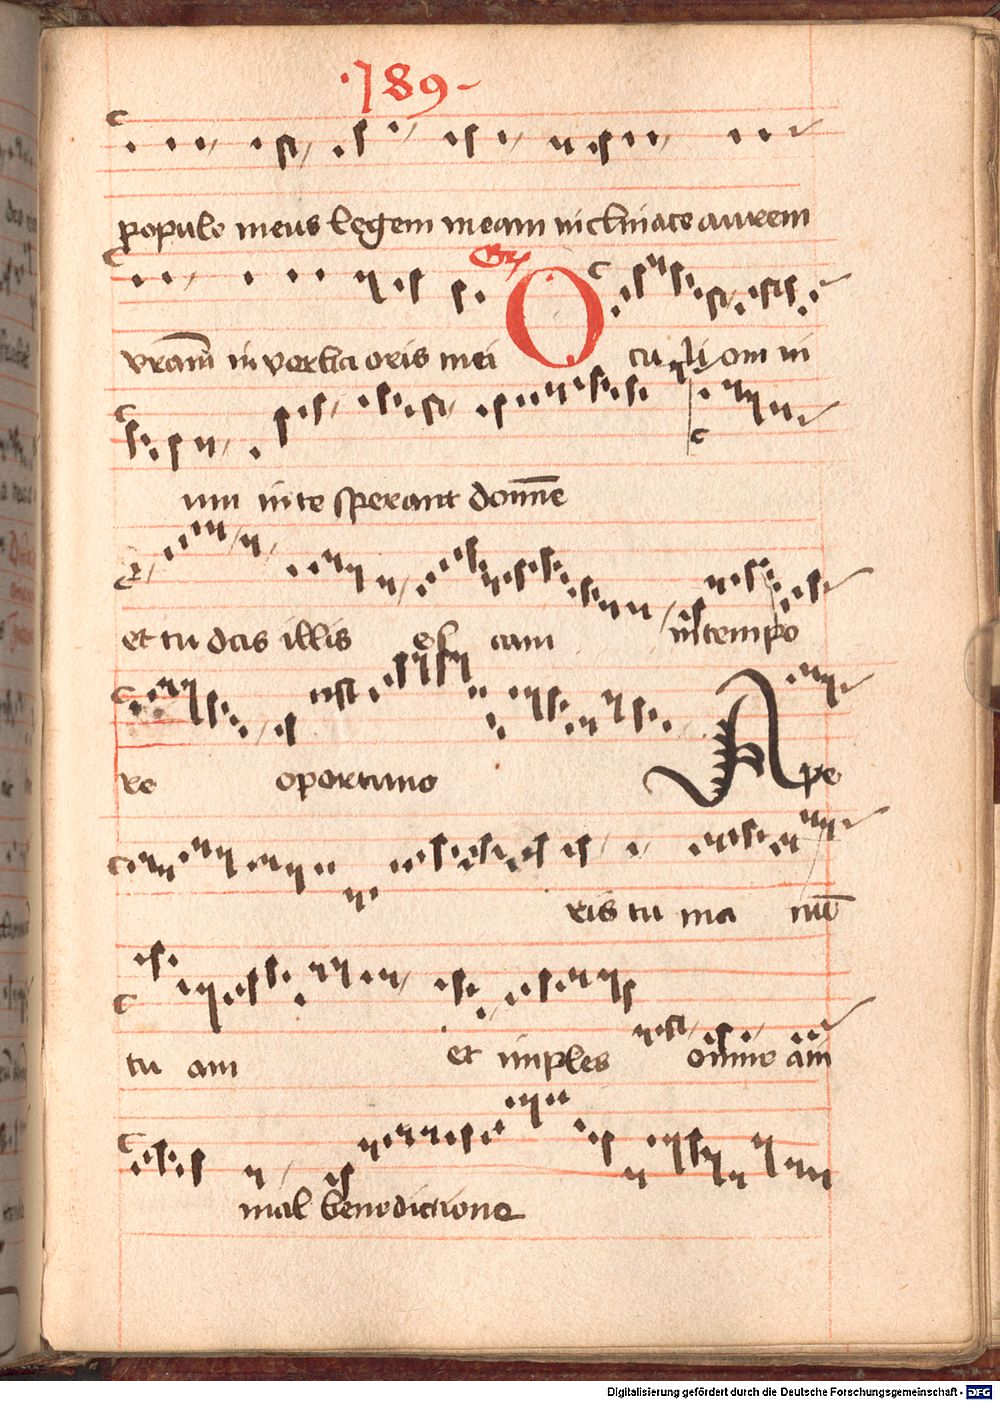 ·189-
populo meus legem meam inclinate aurem
Gr
vram̄ in verba oris mei O cu li om in
um in te sperant domīne
et tu das illis es cam in tempo
re oportuno Ape
ris tu ma nū
tu am et imples omne am
mal benedictione
Digitalisierung gefördert durch die Deutsche Forschungsgemeinschaft - DFG